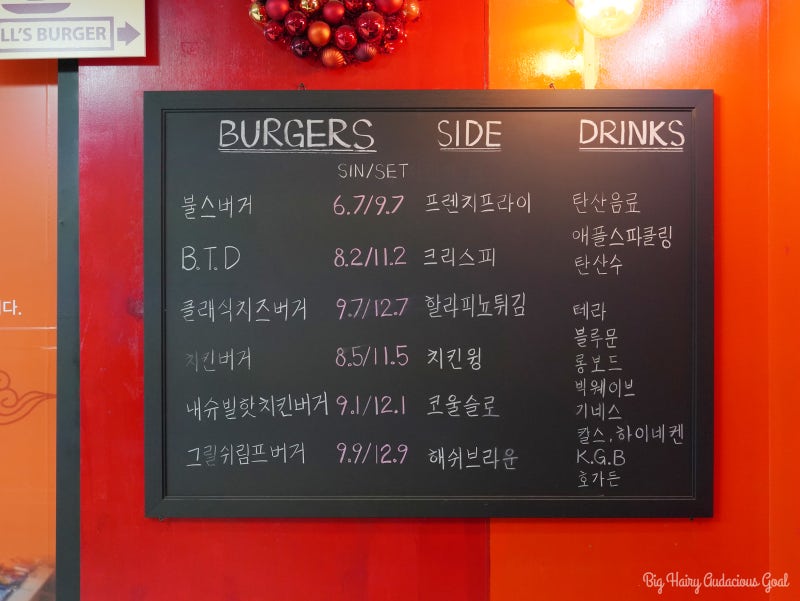 LL'S BURGER
다.
BURGERS
SIN/SET
불스버거 6.7/9.7
B.T.D 8.2/11.2
클래식치즈버거 9.7/12.7
치킨버거 8.5/11.5
내슈빌핫치킨버거 9.1/12.1
그릴쉬림프버거 9.9/12.9
SIDE
프렌치프라이
크리스피
할라피뇨튀김
치킨윙
코울슬로
해쉬브라운
DRINKS
탄산음료
애플스파클링
탄산수
테라
블루문
롱보드
빅웨이브
기네스
칼스, 하이네켄
K.G.B
호가든
Big Hairy Audacious Goal